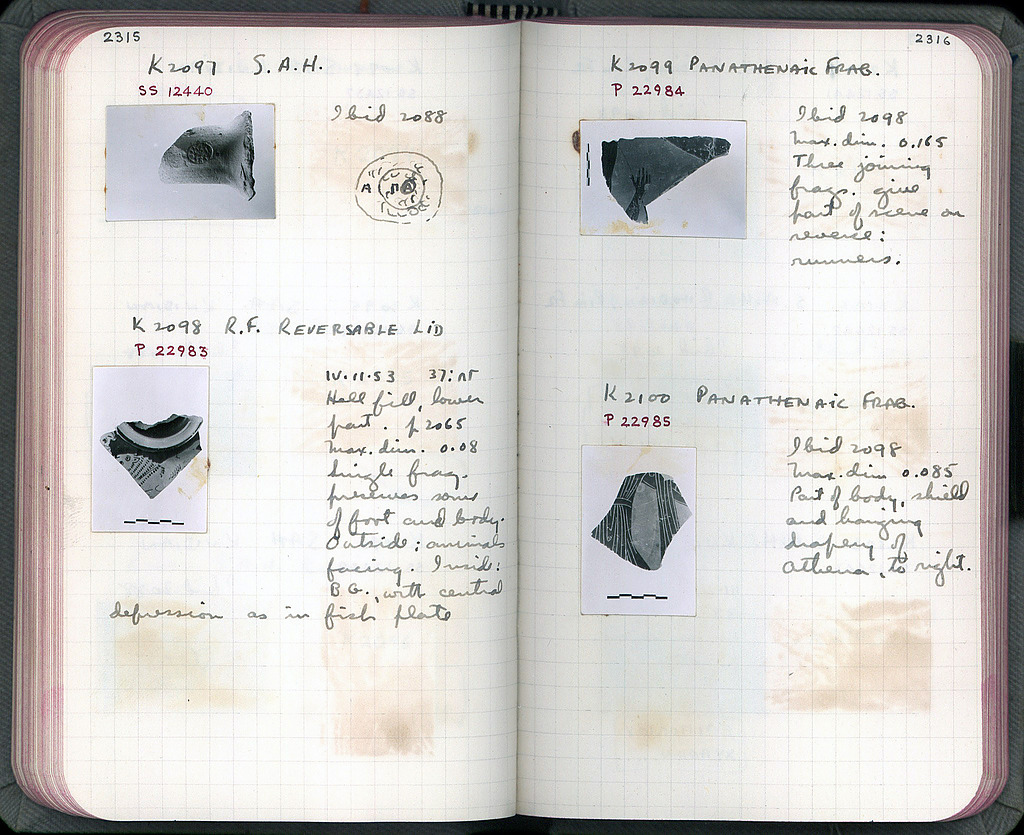 2315
K2097 S.A.H.
SS 12440
Ibid 2088
A
K2098 R.F. REVERSABLE LID
P 22983
IV.11.53 37:ΛΤ
Hell fill, lower
part. p 2065
Max. dim. 0.08
Single frag.
preserves some
of foot and body.
Outside; animals
facing. Inside:
B G., with central
depression as in fish plate
2316
K2099 PANATHENAIC FRAG.
P 22984
Ibid 2098
Max. dim. 0.165
Three joining
frags. give
part of scene on
reverse:
runners.
K2100 PANATHENAIC FRAG.
P 22985
Ibid 2098
Max. dim 0.085
Part of body, shield
and hanging
drapery of
Athena, to right.